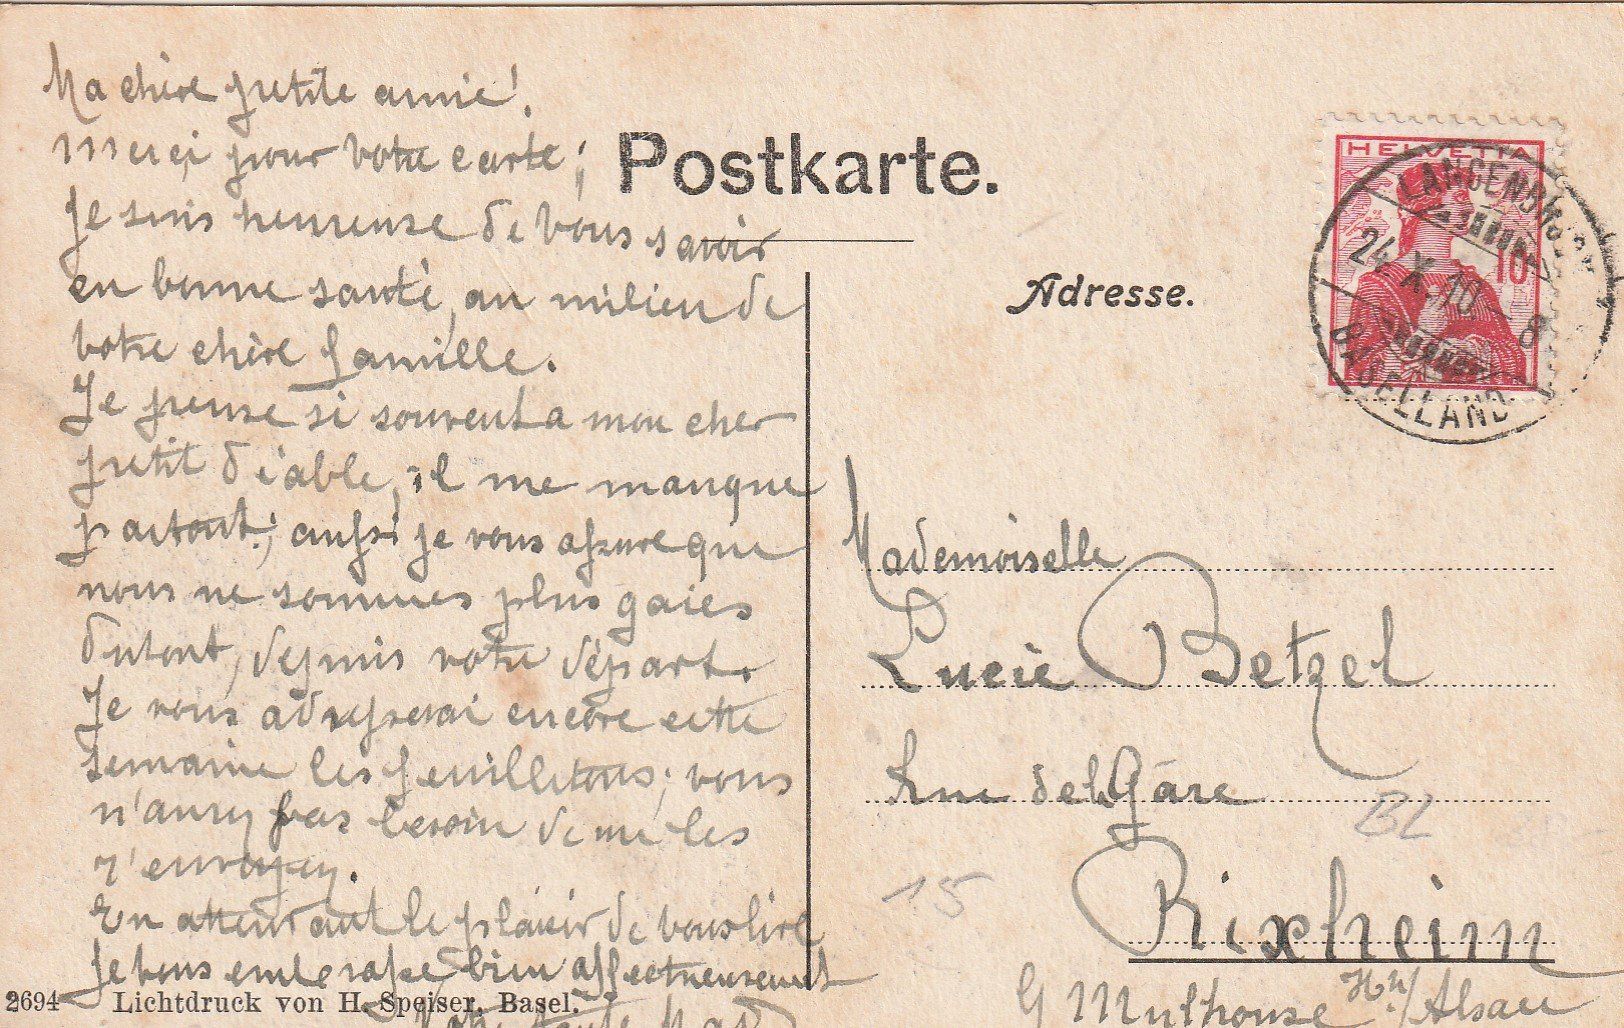 Ma chère petite amie!
Merci pour votre carte;
je suis heureuse de vous savoir
en bonne santé, au milieu de
votre chère famille.
Je pense si souvent a mon cher
petit diable, il me manque
partout; aussi je vous assure que
nous ne sommes plus gaies
dutout, depuis votre départ.
Je vous adresserai encore cette
semaine les feuilletons; vous
n'aurez pas besoin de me les
r'envoyez.
En attendant le plaisir de vous lire
je vous embrasse bien affectueusement
Postkarte.
Adresse.
HELVETIA
10
LANGENBRUCK
24.X.10 8
BASELLAND
Mademoiselle
Lucie Betzel
Rue de la Gare
BL
15
Rixheim
Mulhouse /Alsace
2694 Lichtdruck von H. Speiser, Basel.